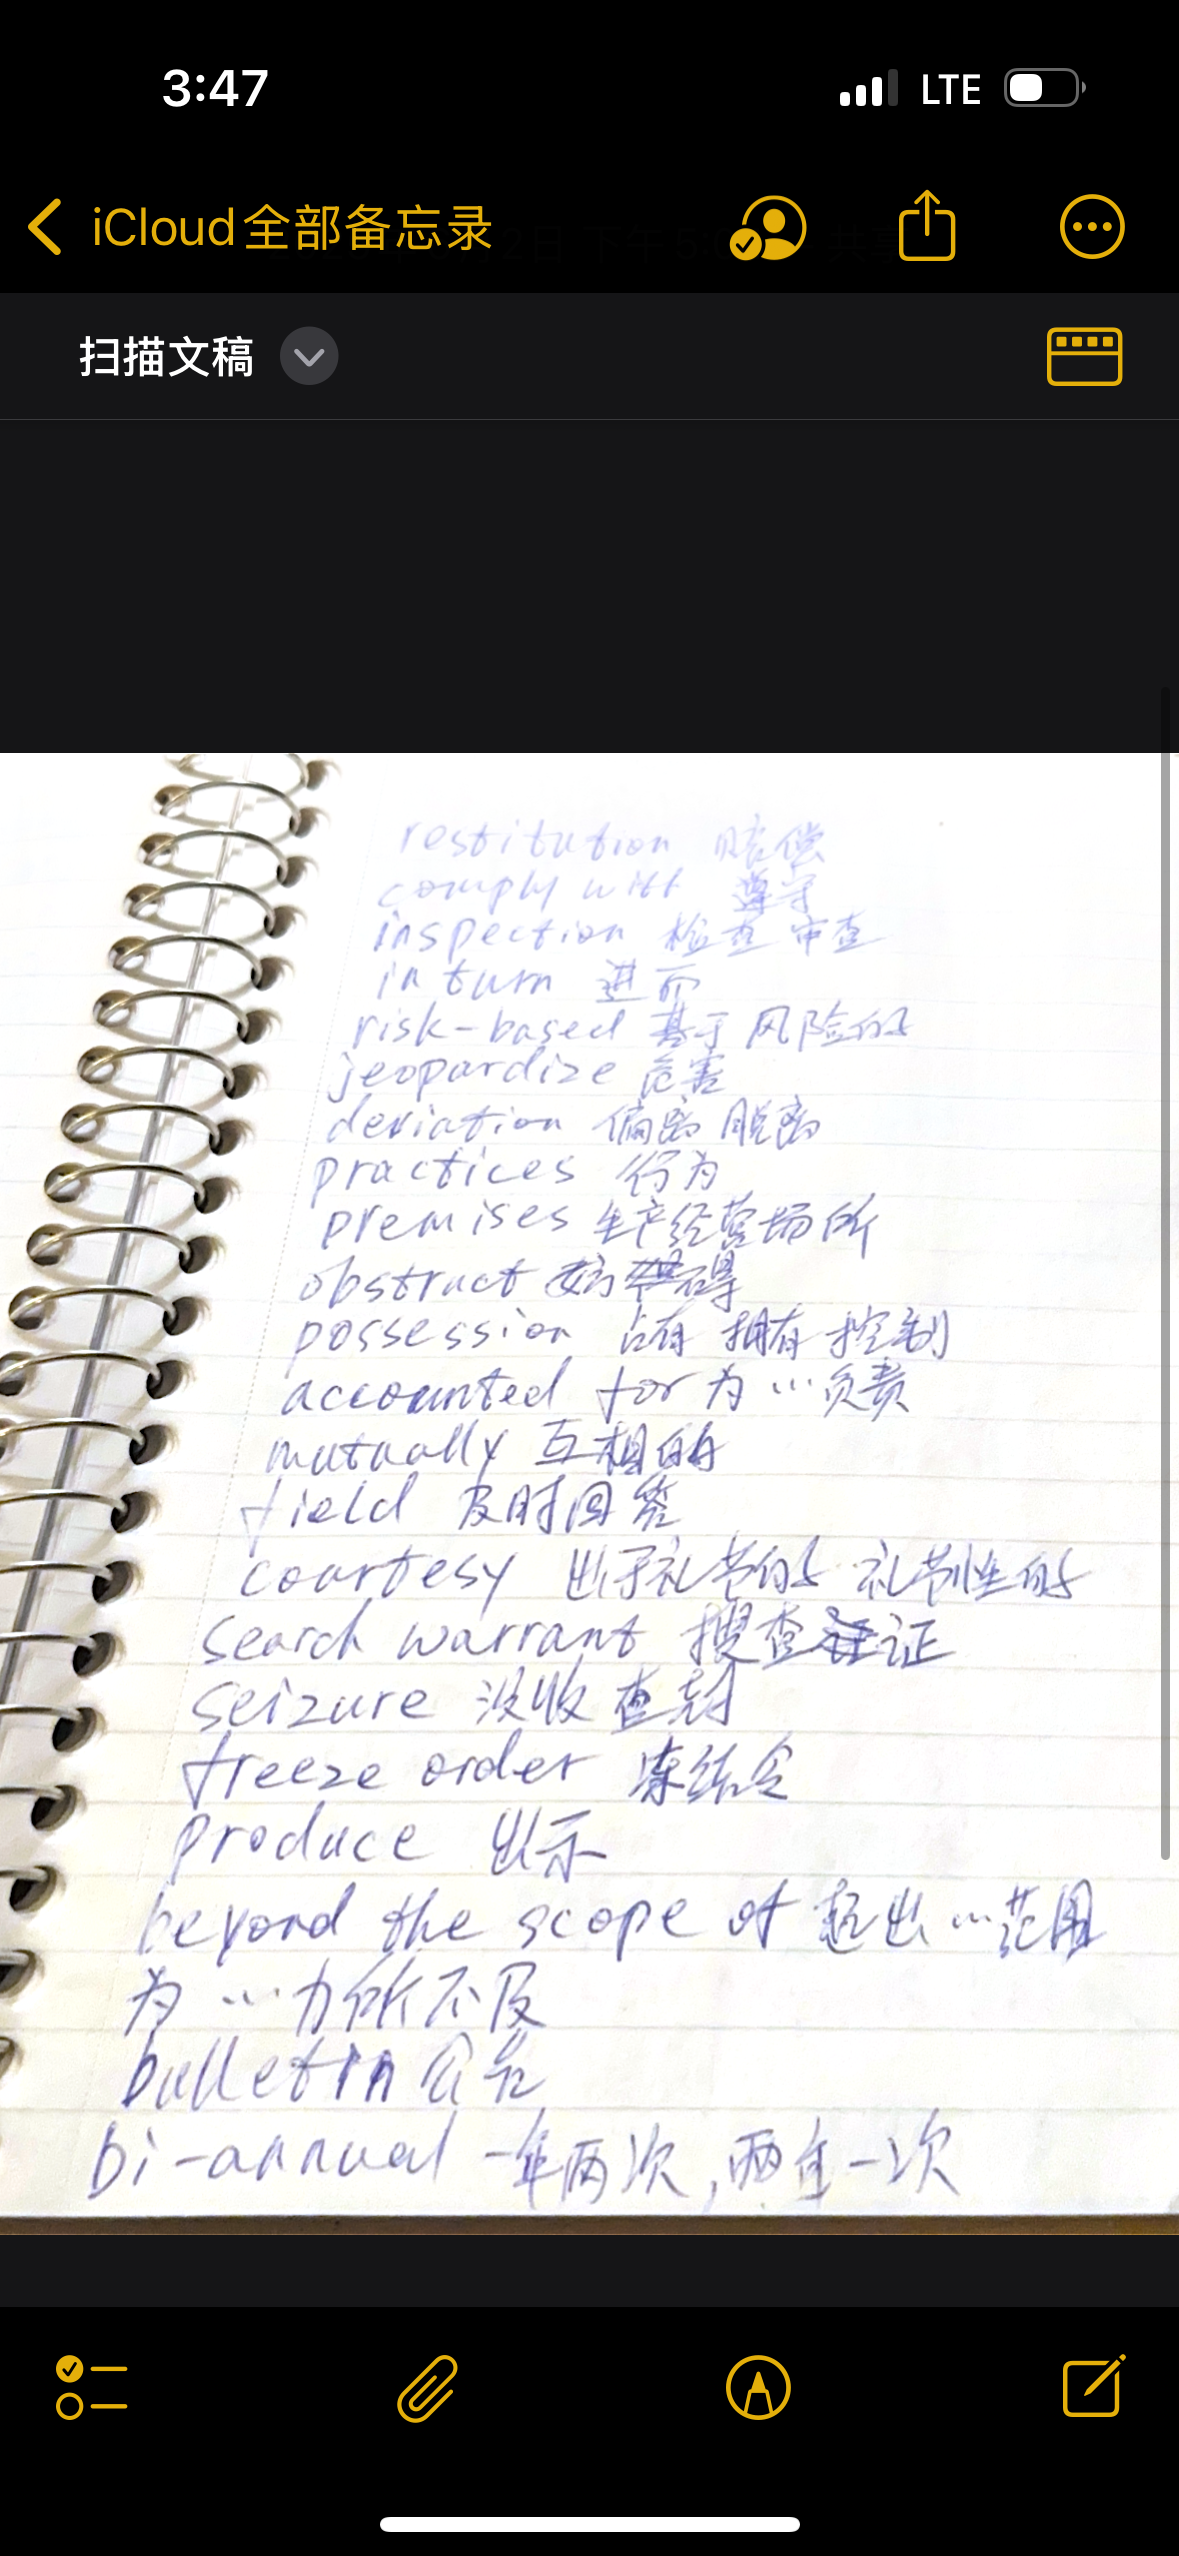 3:47 LTE
iCloud全部备忘录
扫描文稿
restitution 赔偿
comply with 遵守
inspection 检查 审查
in turn 进而
risk-based 基于风险的
jeopardize 危害
deviation 偏离 脱离
practices 行为
premises 生产经营场所
obstruct 妨碍
possession 占有 拥有 控制
accounted for 为…负责
mutually 互相的
field 及时回答
courtesy 出于礼节的 礼节性的
search warrant 搜查证
seizure 没收 查封
freeze order 冻结令
produce 出示
beyond the scope of 超出…范围
为…力所不及
bulletin 公告
bi-annual 一年两次,两年一次